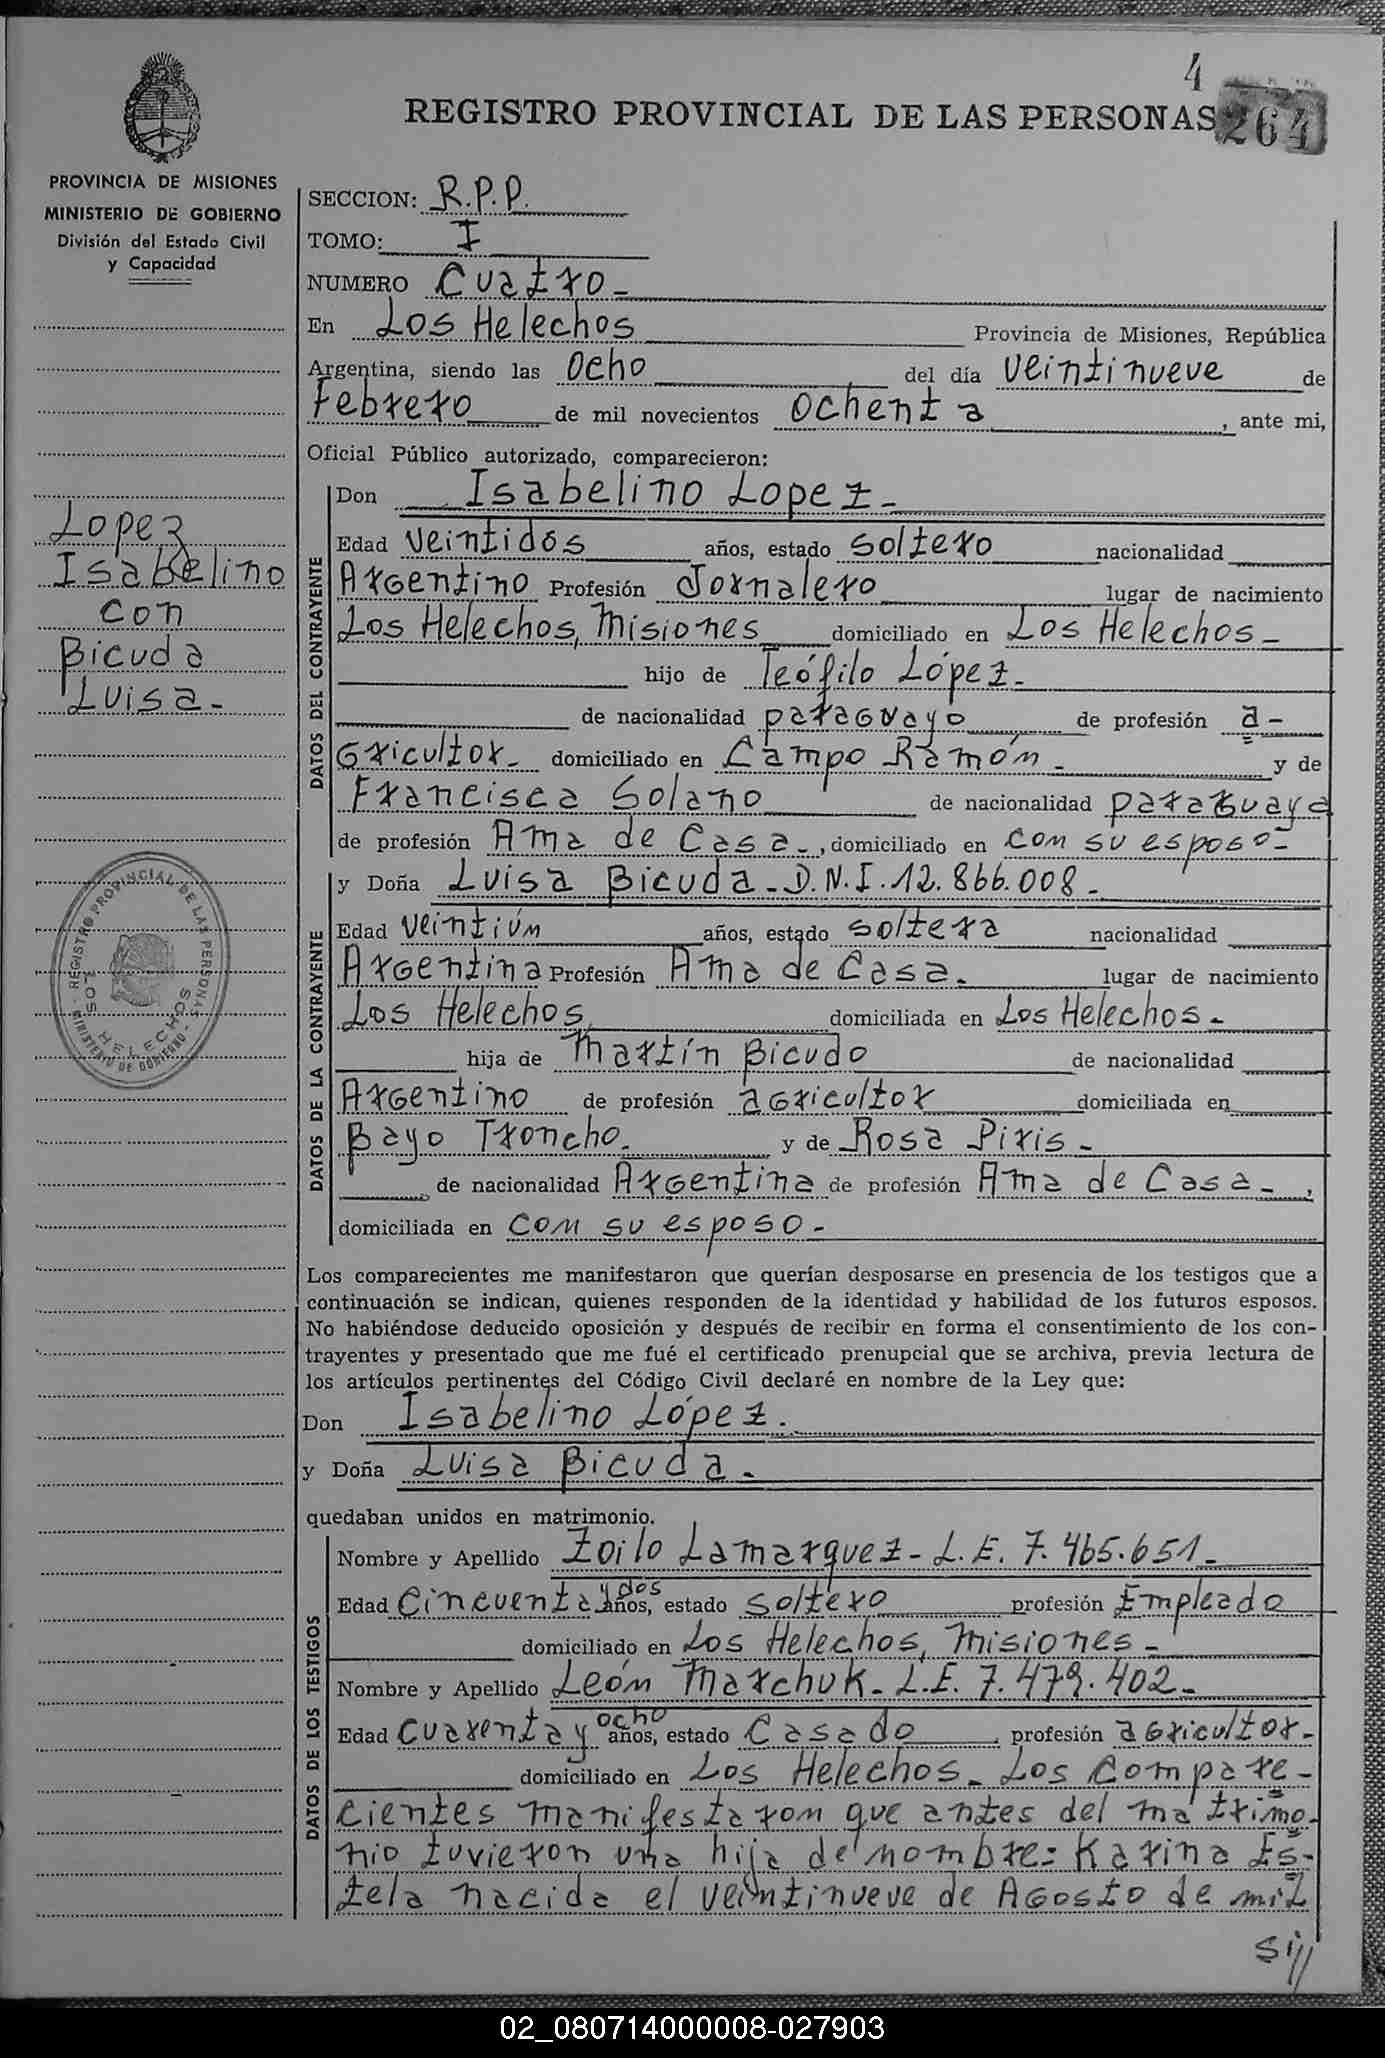 4
264
REGISTRO PROVINCIAL DE LAS PERSONAS
PROVINCIA DE MISIONES
MINISTERIO DE GOBIERNO
División del Estado Civil
y Capacidad
Lopez
Isabelino
con
Bicuda
Luisa.-
REGISTRO PROVINCIAL DE LAS PERSONAS
MINISTERIO DE GOBIERNO
LOS HELECHOS
SECCION: R.P.P.
TOMO: I
NUMERO Cuatro-
En Los Helechos Provincia de Misiones, República
Argentina, siendo las Ocho del día veintinueve de
Febrero de mil novecientos ochenta, ante mi,
Oficial Público autorizado, comparecieron:
DATOS DEL CONTRAYENTE
Don Isabelino Lopez.-
Edad veintidós años, estado soltero nacionalidad
Argentino Profesión Jornalero lugar de nacimiento
Los Helechos, Misiones domiciliado en Los Helechos-
hijo de Teófilo López.-
de nacionalidad paraguayo de profesión a-
gricultor- domiciliado en Campo Ramón- y de
Francisca Solano de nacionalidad paraguaya
de profesión Ama de Casa-, domiciliado en con su esposo-
DATOS DE LA CONTRAYENTE
y Doña Luisa Bicuda-D.N.I.12.866.008-
Edad veintiún años, estado soltera nacionalidad
Argentina Profesión Ama de Casa. lugar de nacimiento
Los Helechos domiciliada en Los Helechos-
hija de Martín Bicudo de nacionalidad
Argentino de profesión agricultor domiciliada en
Bayo Troncho. y de Rosa Piris-
, de nacionalidad Argentina de profesión Ama de Casa-,
domiciliada en con su esposo-
Los comparecientes me manifestaron que querían desposarse en presencia de los testigos que a
continuación se indican, quienes responden de la identidad y habilidad de los futuros esposos.
No habiéndose deducido oposición y después de recibir en forma el consentimiento de los con-
trayentes y presentado que me fué el certificado prenupcial que se archiva, previa lectura de
los artículos pertinentes del Código Civil declaré en nombre de la Ley que:
Don Isabelino López.
y Doña Luisa Bicuda.
quedaban unidos en matrimonio.
DATOS DE LOS TESTIGOS
Nombre y Apellido Zoilo Lamarquez-L.E. 7.465.651-
Edad Cincuenta y dos años, estado soltero profesión Empleado
domiciliado en Los Helechos, Misiones-
Nombre y Apellido León Marchuk-L.E. 7.479.402-
Edad cuarenta y ocho años, estado Casado profesión agricultor-
domiciliado en Los Helechos-Los Compare-
cientes manifestaron que antes del matrimo-
nio tuvieron una hija de nombre: Karina Es-
tela nacida el veintinueve de Agosto de mil
Si//
02_080714000008-027903